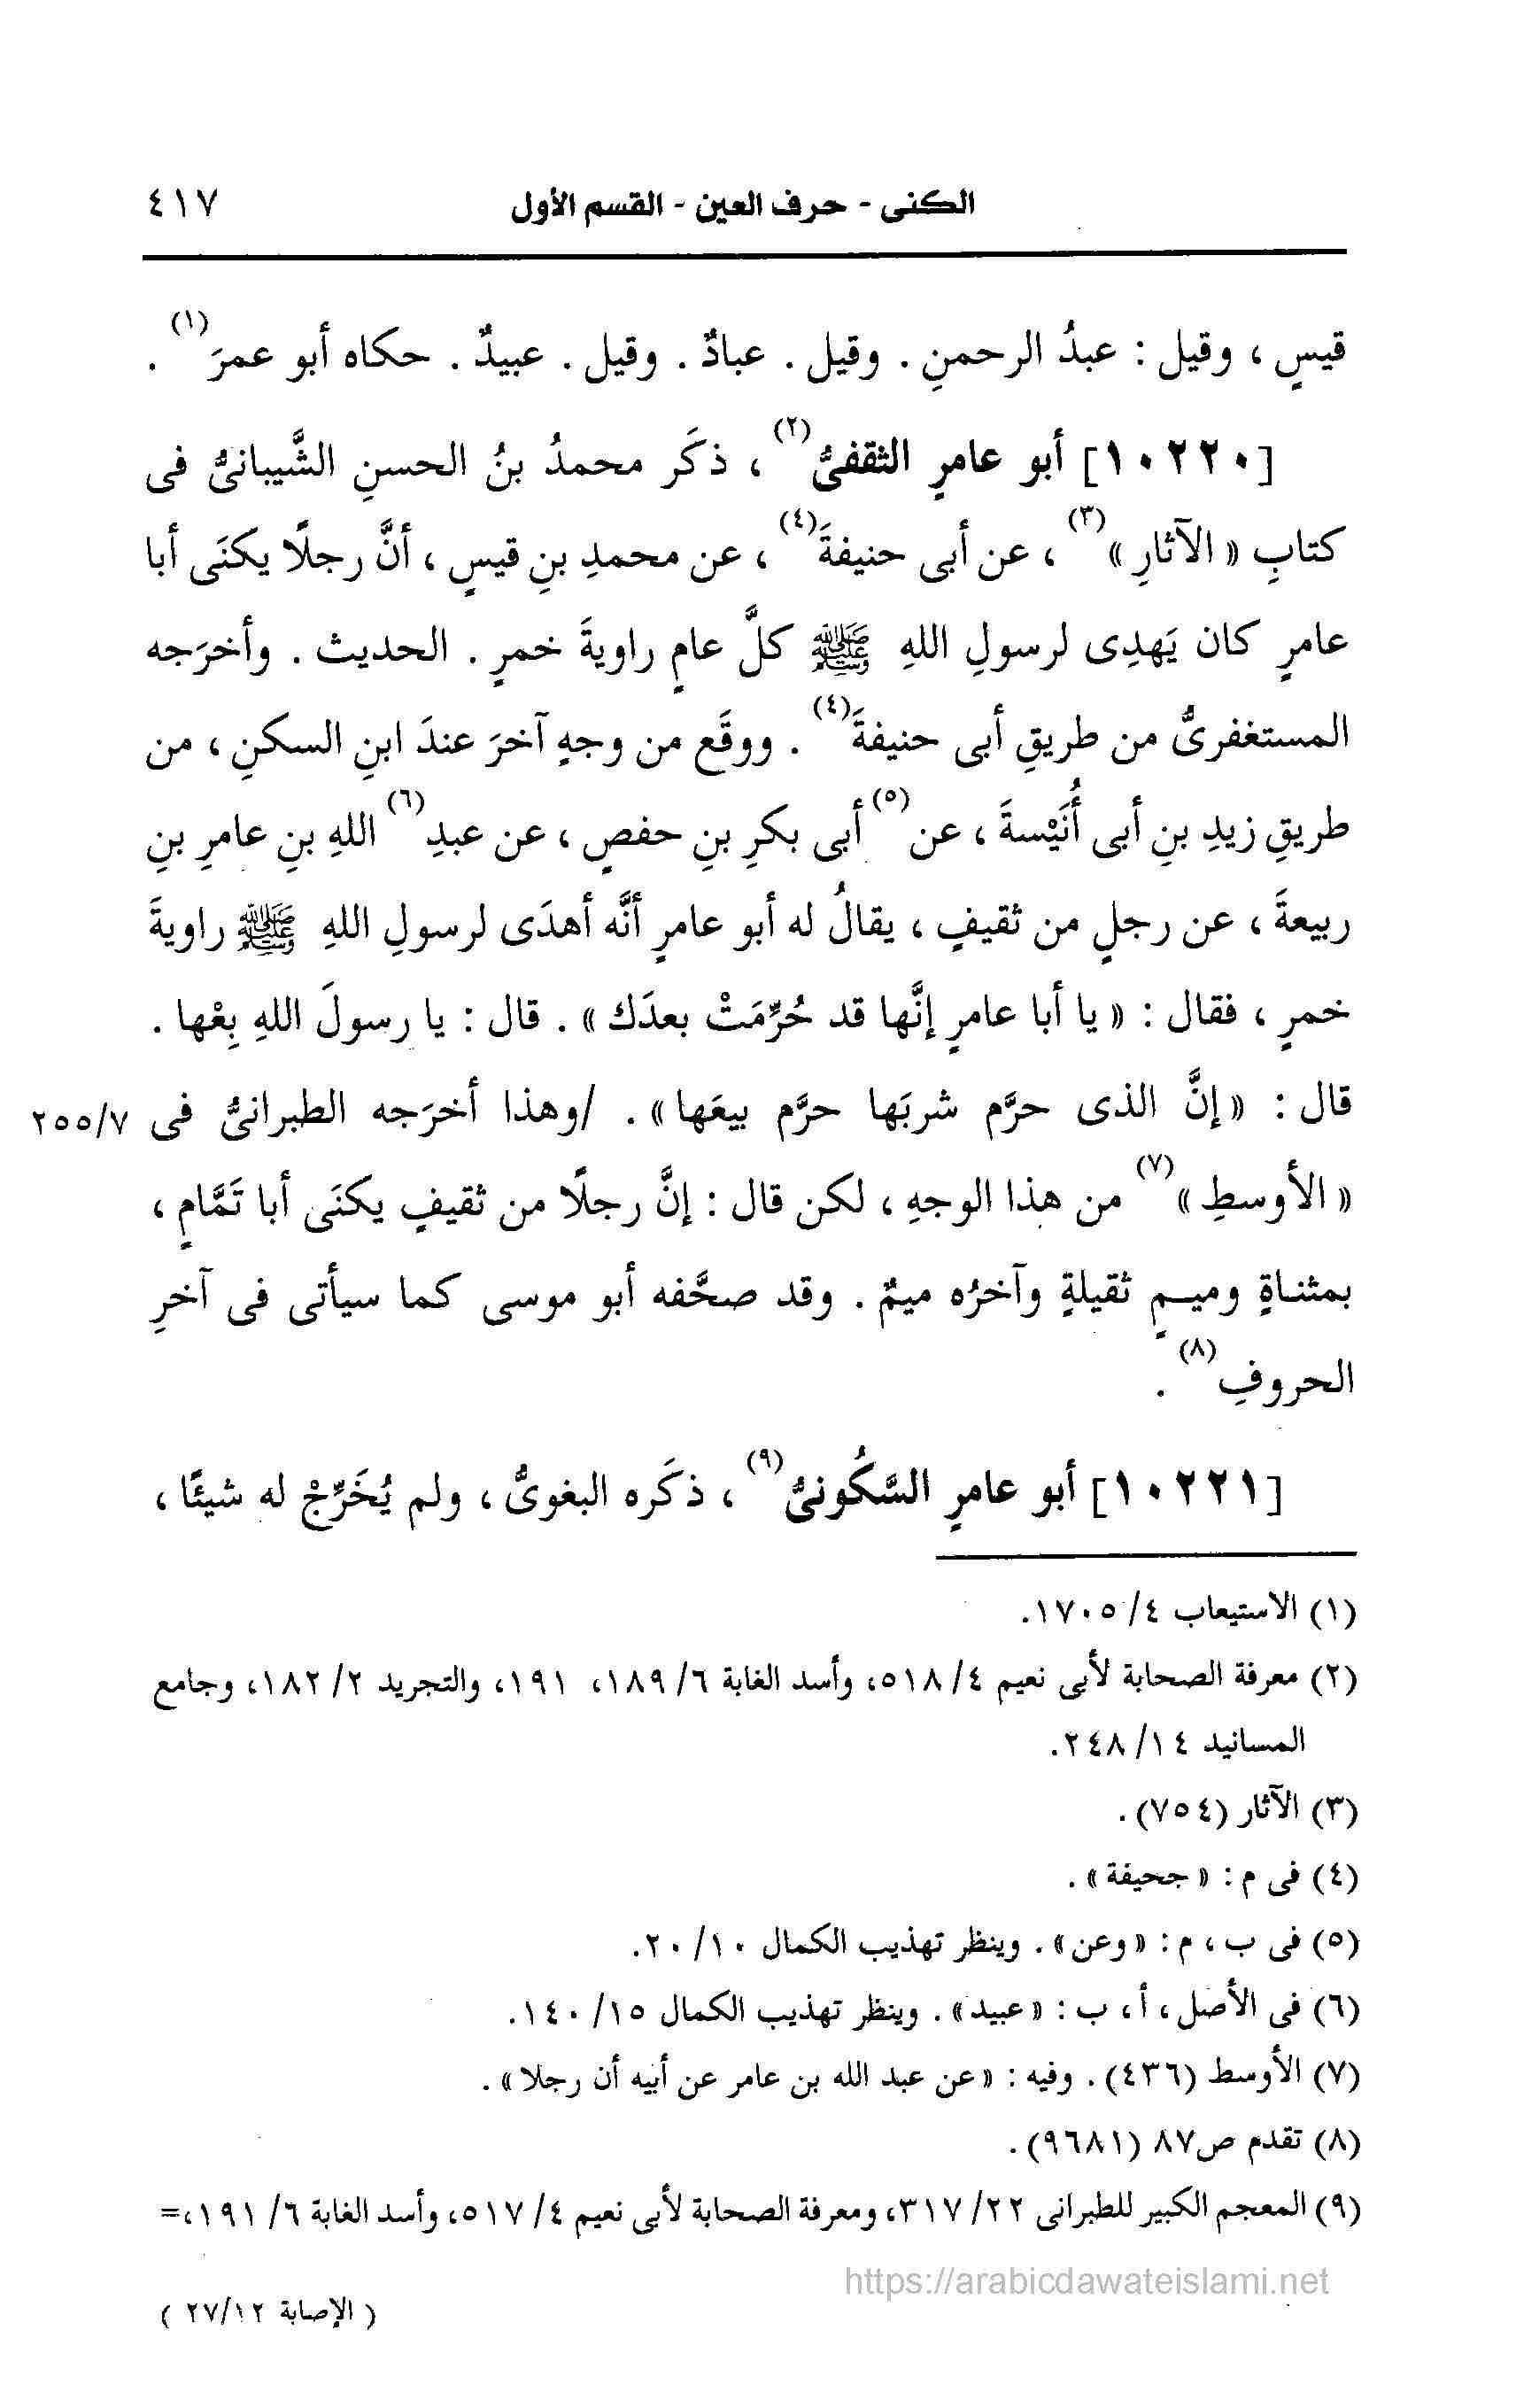 الكنى - حرف العين - القسم الأول ٤١٧
قيسٍ ، وقيل : عبدُ الرحمنِ . وقيل . عبادٌ . وقيل . عبيدٌ . حكاه أبو عمرَ(١) .
[١٠٢٢٠] أبو عامرٍ الثقفىُّ(٢) ، ذكَر محمدُ بنُ الحسنِ الشَّيبانىُّ فى
كتابِ « الآثارِ »(٣) ، عن أبى حنيفةَ(٤) ، عن محمدِ بنِ قيسٍ ، أنَّ رجلًا يكنَى أبا
عامرٍ كان يَهدِى لرسولِ اللهِ ﷺ كلَّ عامٍ راويةَ خمرٍ . الحديث . وأخرَجه
المستغفرىُّ من طريقِ أبى حنيفةَ(٤) . ووقَع من وجهٍ آخرَ عندَ ابنِ السكنِ ، من
طريقِ زيدِ بنِ أبى أُنَيْسةَ ، عن(٥) أبى بكرِ بنِ حفصٍ ، عن عبدِ(٦) اللهِ بنِ عامرِ بنِ
ربيعةَ ، عن رجلٍ من ثقيفٍ ، يقالُ له أبو عامرٍ أنَّه أهدَى لرسولِ اللهِ ﷺ راويةَ
خمرٍ ، فقال : « يا أبا عامرٍ إنَّها قد حُرِّمَتْ بعدَك » . قال : يا رسولَ اللهِ بِعْها .
قال : « إنَّ الذى حرَّم شربَها حرَّم بيعَها » . /وهذا أخرَجه الطبرانىُّ فى ٢٥٥/٧
« الأوسطِ »(٧) من هذا الوجهِ ، لكن قال : إنَّ رجلًا من ثقيفٍ يكنَى أبا تَمَّامٍ ،
بمثناةٍ وميمٍ ثقيلةٍ وآخرُه ميمٌ . وقد صحَّفه أبو موسى كما سيأتى فى آخرِ
الحروفِ(٨) .
[١٠٢٢١] أبو عامرٍ السَّكُونىُّ(٩) ، ذكَره البغوىُّ ، ولم يُخَرِّجْ له شيئًا ،
(١) الاستيعاب ٤/ ١٧٠٥.
(٢) معرفة الصحابة لأبى نعيم ٤/ ٥١٨، وأسد الغابة ٦/ ١٨٩، ١٩١، والتجريد ٢/ ١٨٢، وجامع
المسانيد ١٤/ ٢٤٨.
(٣) الآثار (٧٥٤) .
(٤) فى م : « جحيفة » .
(٥) فى ب ، م : « وعن » . وينظر تهذيب الكمال ١٠/ ٢٠.
(٦) فى الأصل ، أ، ب : « عبيد » . وينظر تهذيب الكمال ١٥/ ١٤٠.
(٧) الأوسط (٤٣٦) . وفيه : « عن عبد الله بن عامر عن أبيه أن رجلا » .
(٨) تقدم ص٨٧ (٩٦٨١) .
(٩) المعجم الكبير للطبرانى ٢٢/ ٣١٧، ومعرفة الصحابة لأبى نعيم ٤/ ٥١٧، وأسد الغابة ٦/ ١٩١،=
https://arabicdawateislami.net
( الإصابة ٢٧/١٢ )